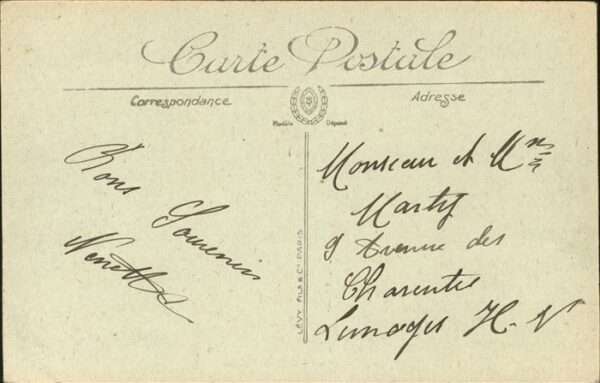 Carte Postale
Correspondance
Adresse
Modèle Déposé
Bons
Souvenirs
Ninette
LÉVY FILS & Cie PARIS
Monsieur et Mme
Marty
9 Avenue des
Charentes
Limoges H-V